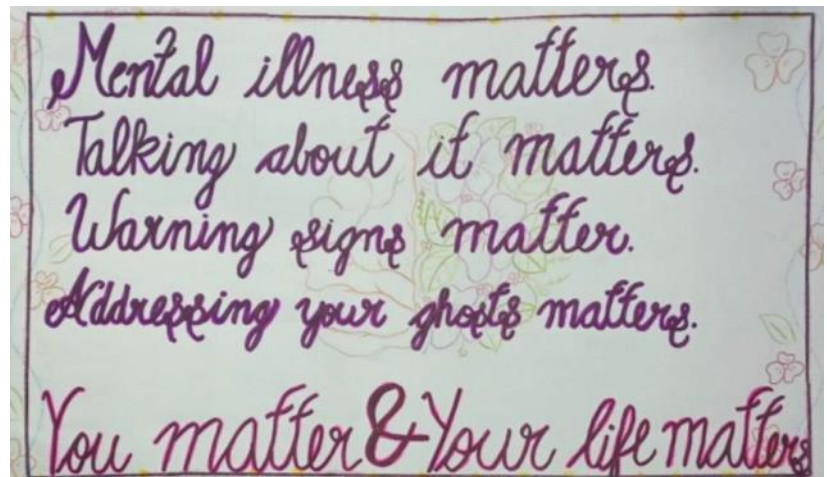 Mental illness matters.
Talking about it matters.
Warning signs matter.
Addressing your ghosts matters.
You matter & Your life matters